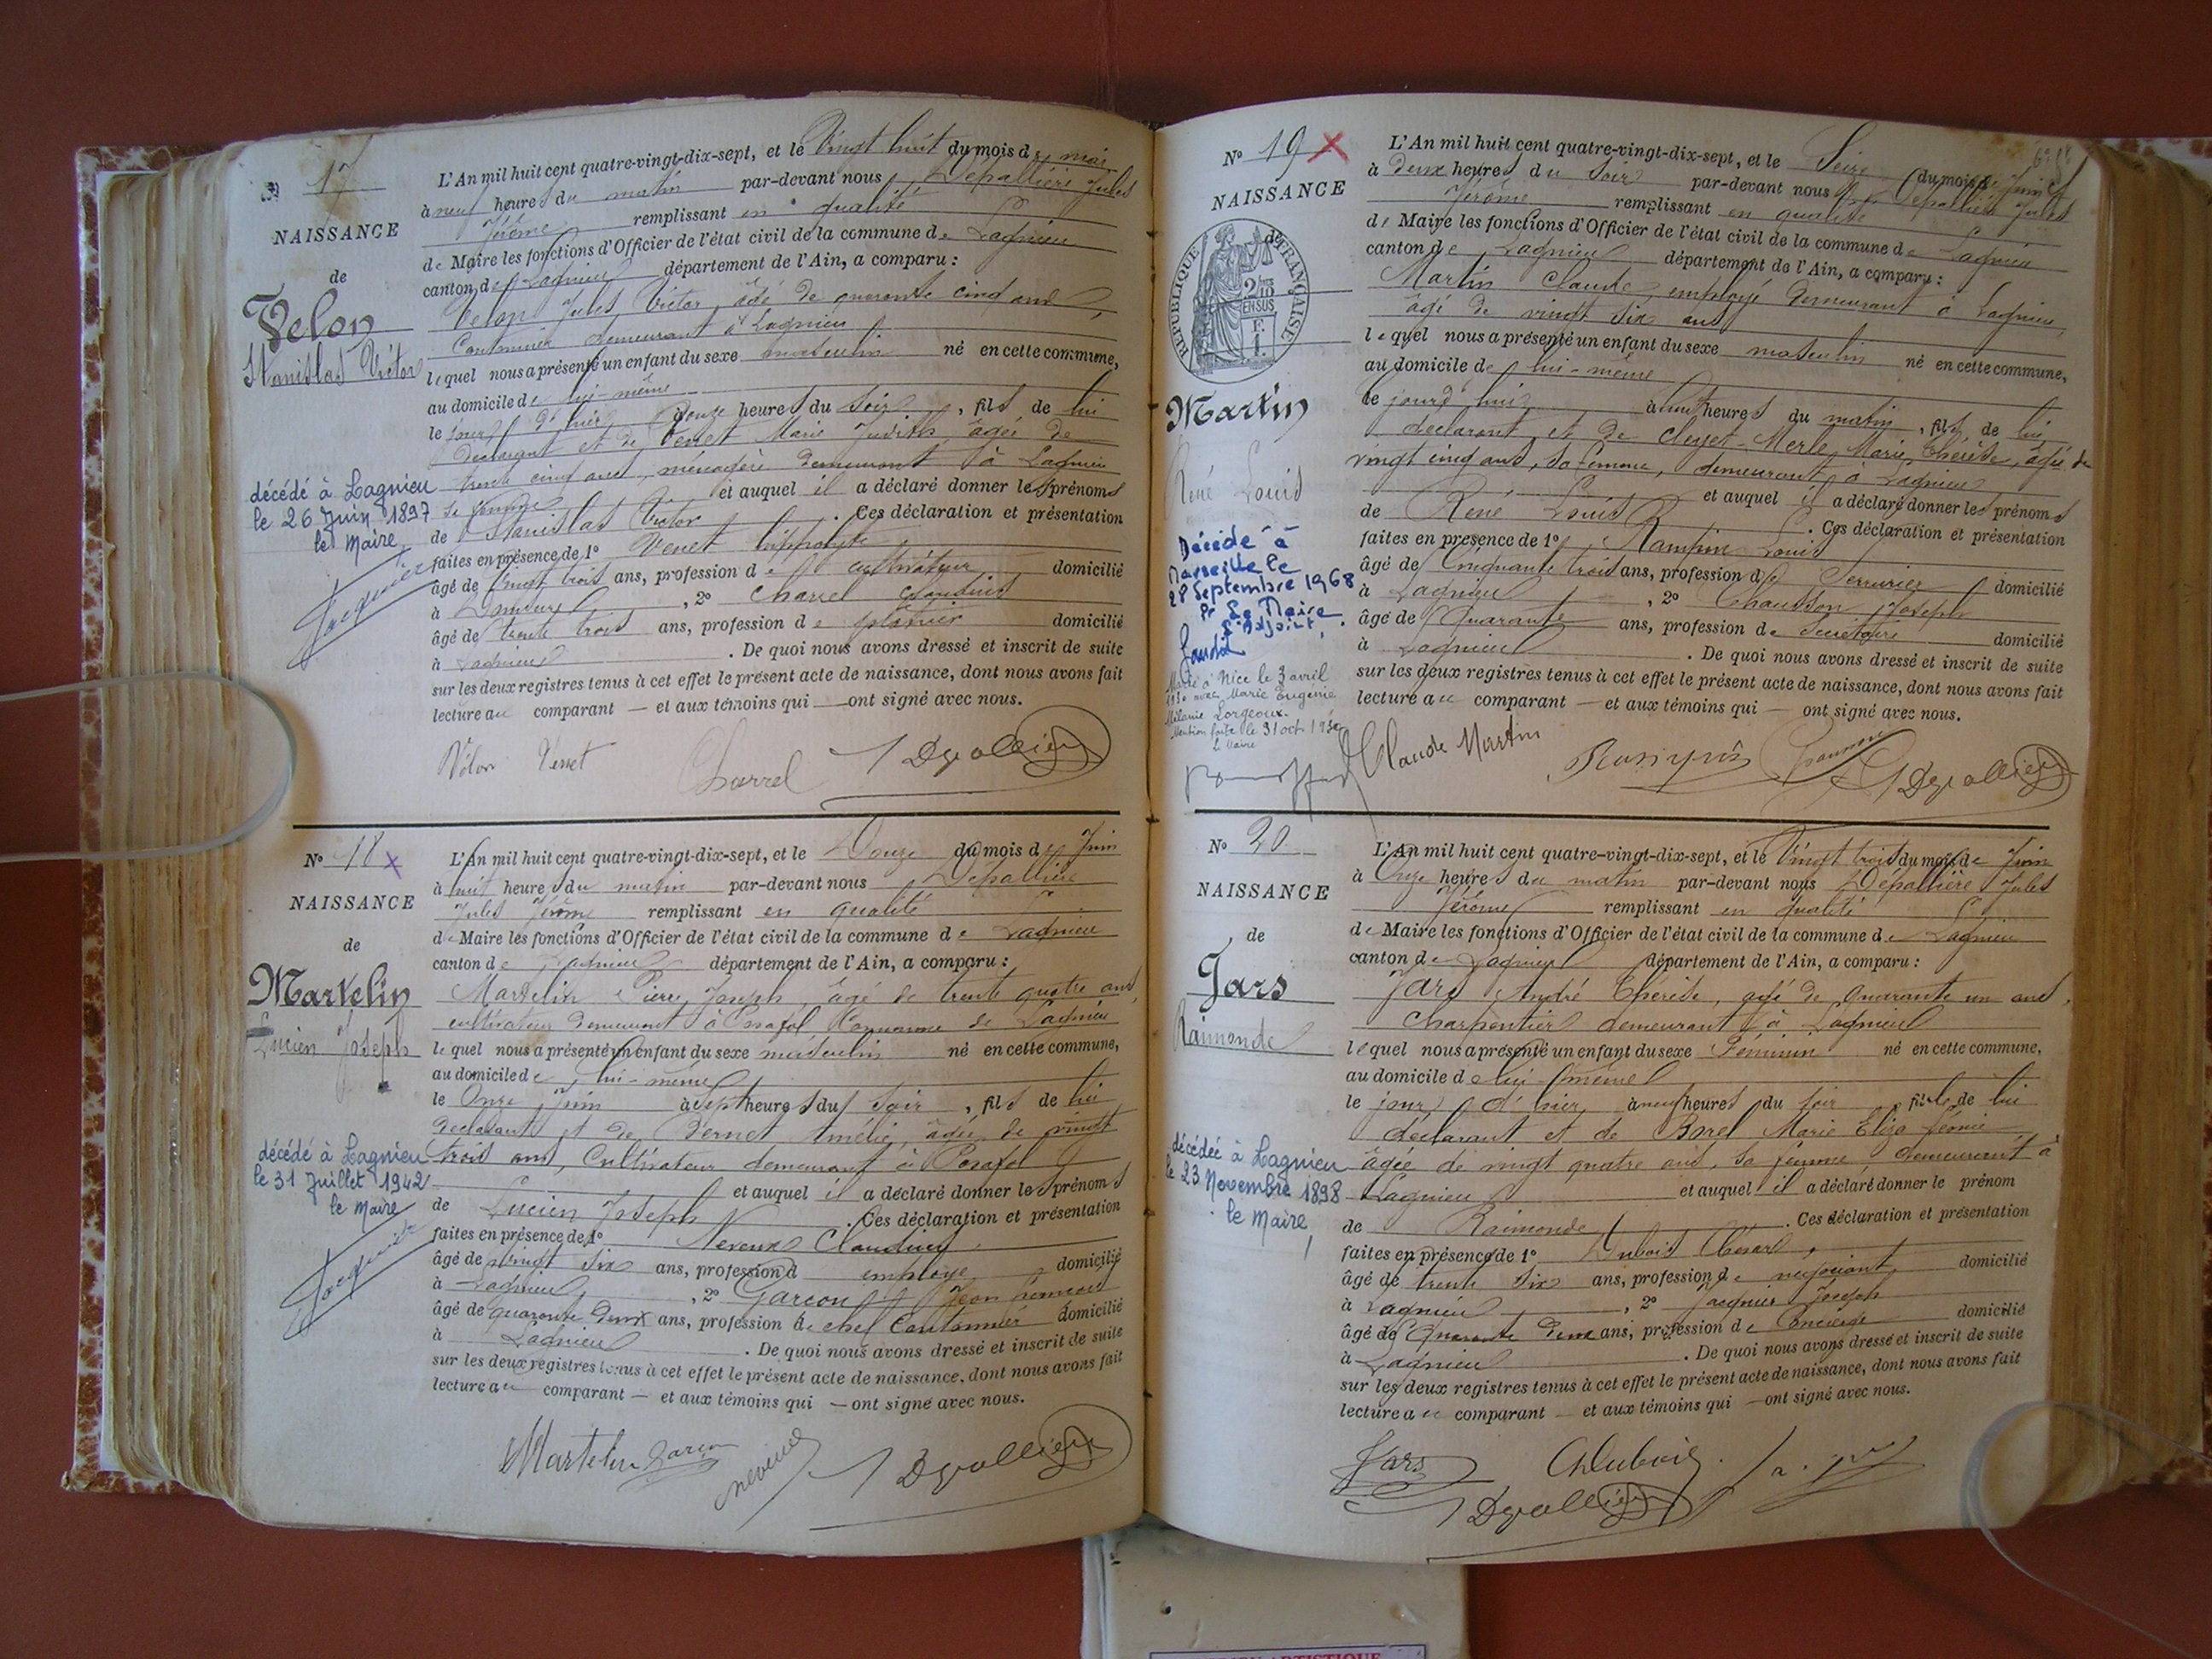 17
NAISSANCE
de
Velon
Stanislas Victor
L'An mil huit cent quatre-vingt-dix-sept, et le Vingt huit du mois de mai
à neuf heures du matin par-devant nous Depallière Jules
Jérôme remplissant en qualité
de Maire les fonctions d'Officier de l'état civil de la commune de Lagnieu
canton de Lagnieu département de l'Ain, a comparu :
Velon Jules Victor, âgé de quarante cinq ans,
Cantonnier demeurant à Lagnieu
lequel nous a présenté un enfant du sexe masculin né en cette commune,
au domicile de lui-même
le jour d'hier à onze heures du soir, fils de lui
déclarant et de Venet Marie Judith âgée de
trente cinq ans, ménagère demeurant à Lagnieu
sa femme et auquel il a déclaré donner les prénoms
de Stanislas Victor. Ces déclaration et présentation
faites en présence de 1° Venet hippolyte
âgé de vingt trois ans, profession de cultivateur domicilié
à , 2° Charrel Claudius
âgé de trente trois ans, profession de plâtrier domicilié
à Lagnieu. De quoi nous avons dressé et inscrit de suite
sur les deux registres tenus à cet effet le présent acte de naissance, dont nous avons fait
lecture au comparant — et aux témoins qui — ont signé avec nous.
décédé à Lagnieu
le 26 Juin 1897
le Maire
Jacquier
Vélon Venet Charrel J Depallière
N° 18 x
NAISSANCE
de
Martelin
Lucien Joseph
L'An mil huit cent quatre-vingt-dix-sept, et le Douze du mois de Juin
à huit heures du matin par-devant nous Depallière
Jules Jérôme remplissant en qualité
de Maire les fonctions d'Officier de l'état civil de la commune de Lagnieu
canton de Lagnieu département de l'Ain, a comparu :
Martelin Pierre Joseph, âgé de trente quatre ans,
cultivateur demeurant à Posafol Commune de Lagnieu
lequel nous a présenté un enfant du sexe masculin né en cette commune,
au domicile de lui-même
le Onze Juin à sept heures du soir, fils de lui
déclarant et de Bernet Amélie, âgée de vingt
trois ans, Cultivateur demeurant à Posafol
et auquel il a déclaré donner les prénoms
de Lucien Joseph. Ces déclaration et présentation
faites en présence de 1° Neveux Claudius
âgé de vingt six ans, profession d employé domicilié
à Lagnieu, 2° Garcon Jean françois
âgé de quarante deux ans, profession de chef Cantonnier domicilié
à Lagnieu. De quoi nous avons dressé et inscrit de suite
sur les deux registres tenus à cet effet le présent acte de naissance, dont nous avons fait
lecture au comparant — et aux témoins qui — ont signé avec nous.
décédé à Lagnieu
le 31 Juillet 1942
le Maire
Jacquier
Martelin Garcon neveux J Depallière
N° 19 x
NAISSANCE
RÉPUBLIQUE FRANÇAISE
2/10
EN SUS
Martin
René Louis
L'An mil huit cent quatre-vingt-dix-sept, et le Seize du mois de Juin
à deux heures du soir par-devant nous Depallière Jules
Jérôme remplissant en qualité
de Maire les fonctions d'Officier de l'état civil de la commune de Lagnieu
canton de Lagnieu département de l'Ain, a comparu :
Martin Claude employé demeurant à Lagnieu,
âgé de vingt six ans
lequel nous a présenté un enfant du sexe masculin né en cette commune,
au domicile de lui-même
le jour d'hui à huit heures du matin, fils de lui
déclarant et de Cleyet-Merle Marie Thérèse, âgée de
vingt cinq ans, sa femme, demeurant à Lagnieu
et auquel il a déclaré donner les prénoms
de René Louis. Ces déclaration et présentation
faites en présence de 1° Louis
âgé de Cinquante trois ans, profession de Serrurier domicilié
à Lagnieu, 2° Chausson Joseph
âgé de Quarante ans, profession de Secrétaire domicilié
à Lagnieu. De quoi nous avons dressé et inscrit de suite
sur les deux registres tenus à cet effet le présent acte de naissance, dont nous avons fait
lecture au comparant — et aux témoins qui — ont signé avec nous.
Décédé à
Marseille le
28 Septembre 1968
Pr Le Maire
L'Adjoint,
Marié à Nice le 3 avril
1930 avec Marie Eugénie
Mélanie Lorgeoux.
Mention faite le 31 oct 1930
Le Maire
Claude Martin Chausson J Depallière
N° 20
NAISSANCE
de
Jars
Raimonde
L'An mil huit cent quatre-vingt-dix-sept, et le Vingt trois du mois de Juin
à Onze heures du matin par-devant nous Dépallière Jules
Jérôme remplissant en qualité
de Maire les fonctions d'Officier de l'état civil de la commune de Lagnieu
canton de Lagnieu département de l'Ain, a comparu :
Jars André Thérèse, âgé de quarante un ans,
Charpentier demeurant à Lagnieu
lequel nous a présenté un enfant du sexe Féminin né en cette commune,
au domicile de lui-même
le jour d'hier à neuf heures du soir, fille de lui
déclarant et de Borel Marie Eliza Léonie
âgée de vingt quatre ans, sa femme demeurant à
Lagnieu et auquel il a déclaré donner le prénom
de Raimonde. Ces déclaration et présentation
faites en présence de 1° Dubois César,
âgé de trente six ans, profession de négociant domicilié
à Lagnieu, 2° Jacquier Joseph
âgé de Quarante deux ans, profession de Concierge domicilié
à Lagnieu. De quoi nous avons dressé et inscrit de suite
sur les deux registres tenus à cet effet le présent acte de naissance, dont nous avons fait
lecture au comparant — et aux témoins qui — ont signé avec nous.
décédée à Lagnieu
le 23 Novembre 1898
le Maire
Jars Ch Dubois
J Depallière